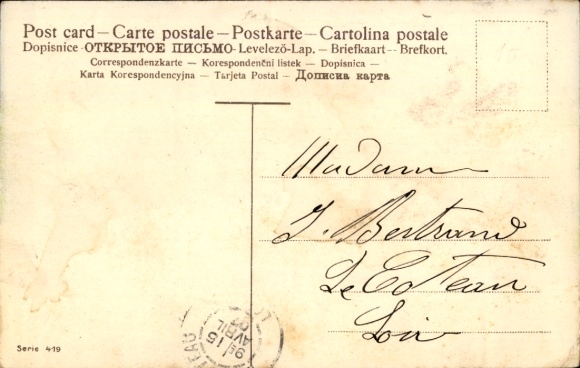 Post card – Carte postale – Postkarte – Cartolina postale
Dopisnice - ОТКРЫТОЕ ПИСЬМО - Levelező-Lap. – Briefkaart - Brefkort.
Correspondenzkarte – Korespondenční listek – Dopisnica –
Karta Korespondencyjna – Tarjeta Postal – Дописна карта
Madame
J. Bertrand
Le Coteau
Loire
15
AVRIL
Serie 419